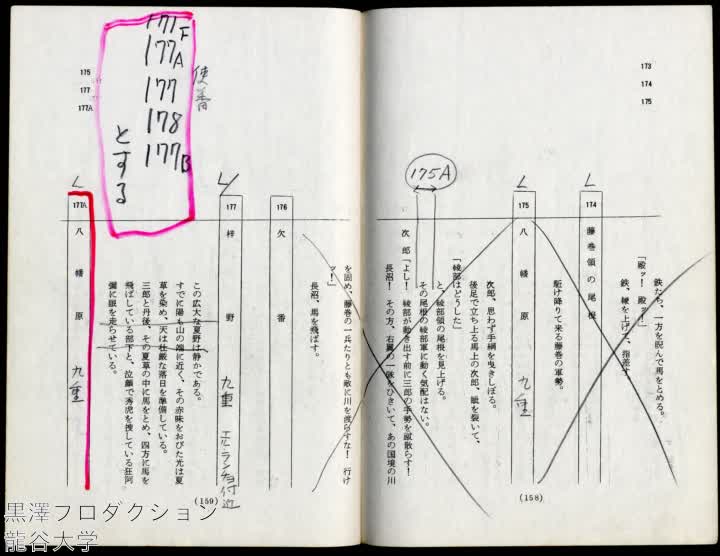 173
174
175
174 藤巻領の尾根
「殿ッ！ 殿ッ！」
鉄たち、一方を睨んで馬をとめる。
鉄、鞭を上げて、指差す。
175 八幡原 九重
駈け降りて来る藤巻の軍勢。
次郎、思わず手綱を曳きしぼる。
後足で立ち上る馬上の次郎、眦を裂いて、
「綾部はどうした」
と、綾部領の尾根を見上げる。
その尾根の綾部軍に動く気配はない。
175A
次郎「よし！ 綾部が動き出す前に三郎の手勢を蹴散らす！
長沼！ その方、右翼の一隊をひきいて、あの国境の川
(158)
175
177
177A
を固め、藤巻の一兵たりとも敵に川を渡らすな！ 行け
ッ！」
長沼、馬を飛ばす。
176 欠番
177 梓野 九重 エルランチョ付近
この広大な夏野は静かである。
すでに陽も山の端に近く、その赤味をおびた光は夏
草を染め、天は壮厳な落日を準備している。
三郎と丹後、その夏草の中に馬をとめ、四方に馬を
飛ばしている部下と、泣顔で秀虎を捜している狂阿
彌に眼を走らせている。
177A 八幡原 九重
(159)
177F
177A
177
178
177B
とする
黒澤プロダクション
龍谷大学